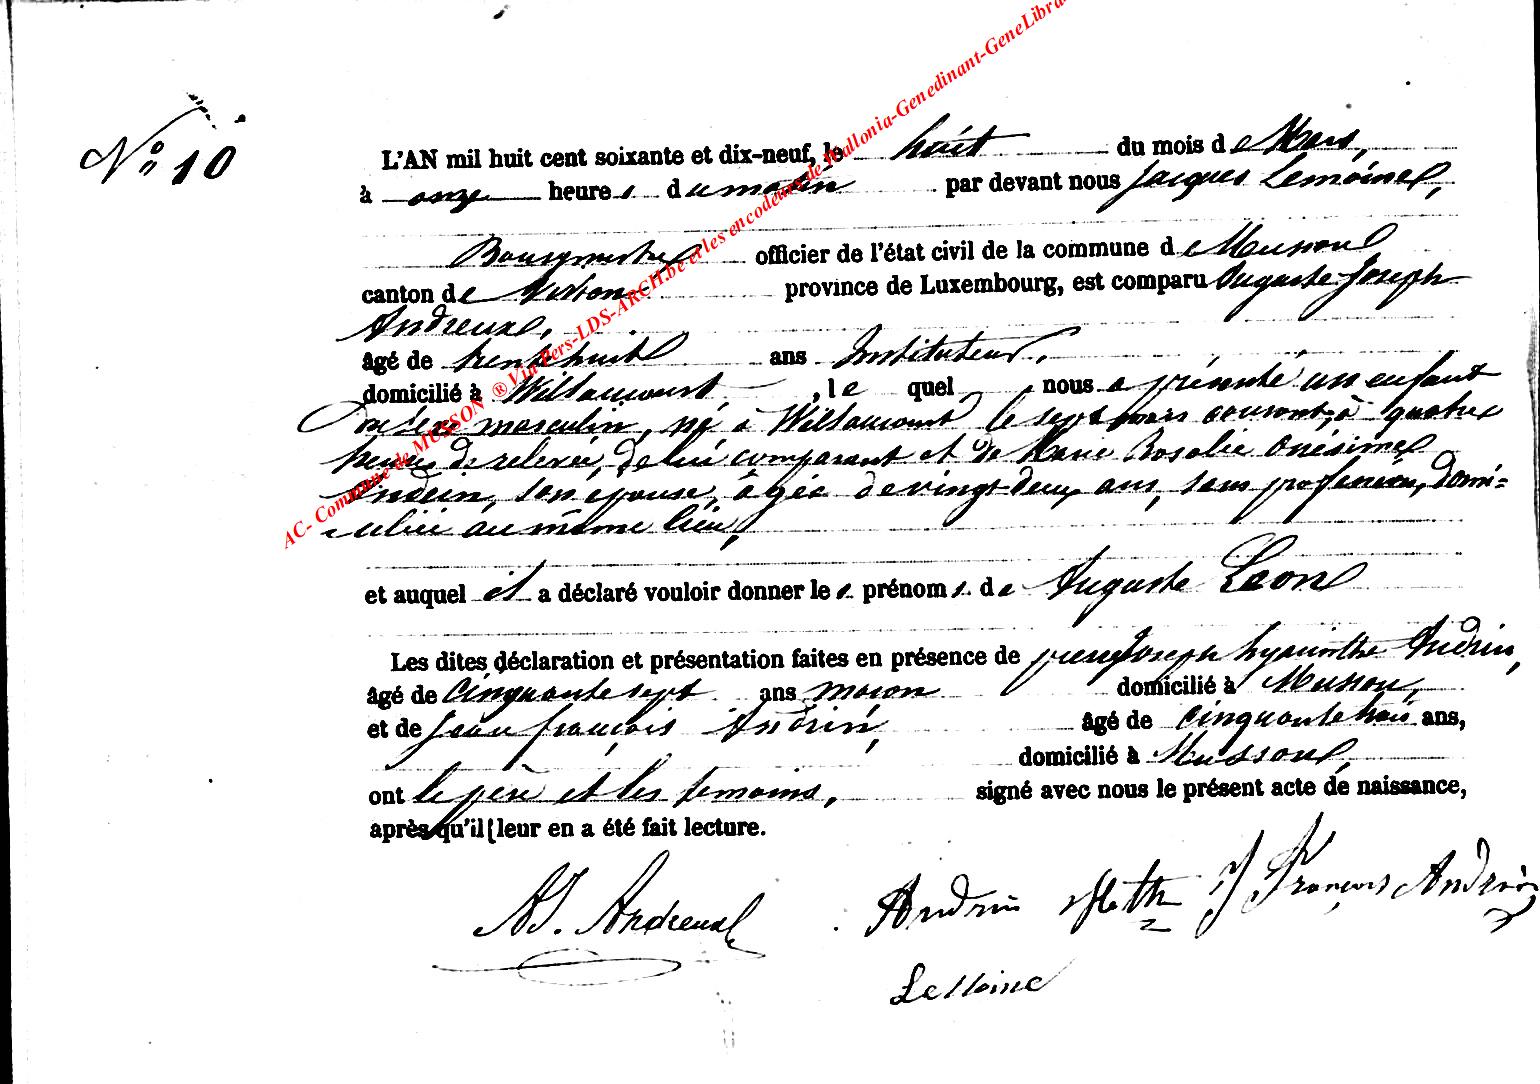 N° 10
L'AN mil huit cent soixante et dix-neuf, le huit du mois de Mars,
à onze heures du matin par devant nous Jacques Lemoine,
Bourgmestre officier de l'état civil de la commune de Musson
canton de Virton province de Luxembourg, est comparu Auguste Joseph
Andreux,
âgé de trente huit ans Instituteur,
domicilié à Willancourt, , le quel nous a présenté un enfant
du sexe masculin, né à Willancourt le sept mars courant, à quatre
heures de relevée, de lui comparant et de Marie Rosalie Onésime
son épouse, âgée de vingt-deux ans, sans profession, domi=
ciliée au même lieu,
et auquel il a déclaré vouloir donner les prénoms de Auguste Léon
Les dites déclaration et présentation faites en présence de Joseph hyacinthe Andrin,
âgé de cinquante sept ans maçon domicilié à Musson,
et de Jean françois Andrin, âgé de cinquante trois ans,
domicilié à Musson,
ont le père et les témoins, signé avec nous le présent acte de naissance,
après qu'il leur en a été fait lecture.
AJ. Andreux Andrin J François Andrin
Lemoine
AC- Commune de MUSSON ® Via Pers-LDS-ARCH.be et les encodeurs de Wallonia-Genedinant-GeneLibra